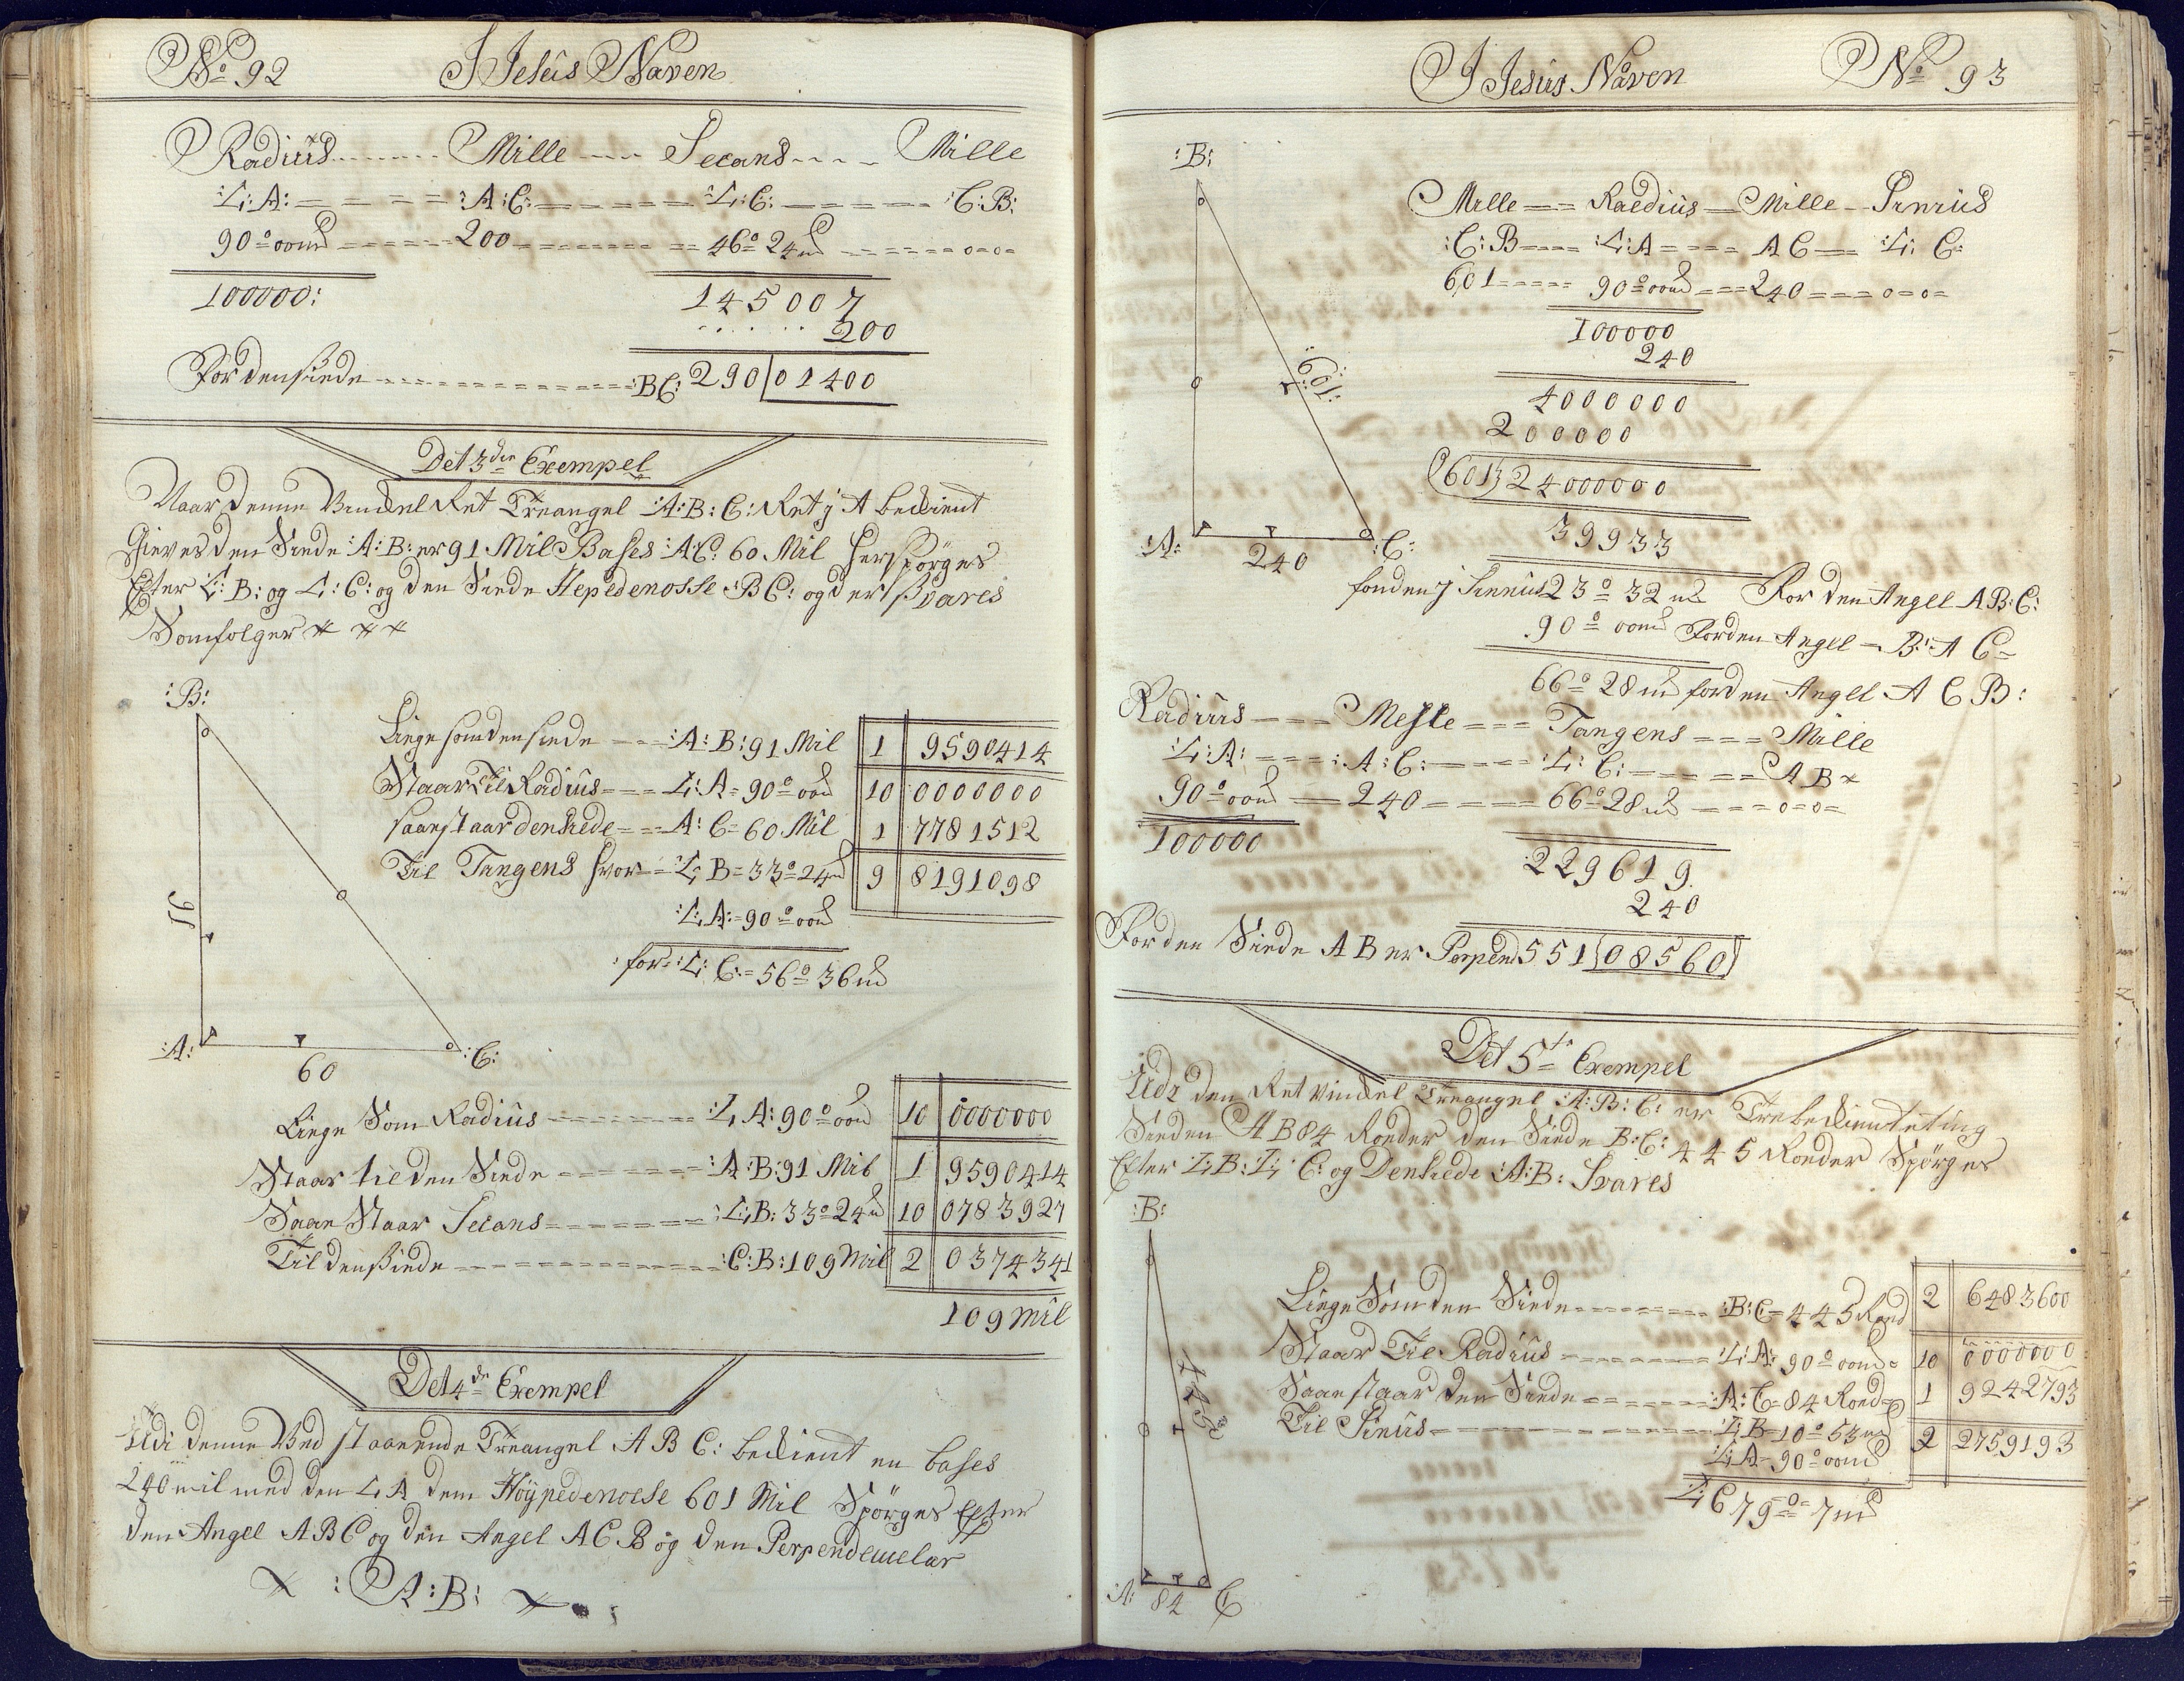 No 92 I Jesus Naven
Radius Mille Secans Mille
:L:A: :A:C: :L:C: :C:B:
90° 00m 200 46° 24m
100000: 145007
200
For den siede BC: 290|01400
Det 3die Exempel
Naar denne Vinckel Ret Treangel :A:B:C: Ret j A beckient
Gieves den Siede :A:B: er 91 Mil Bases :A:C: 60 Mil her spörges
Efter L:B: og L:C: og den Siede Hepedenosse :BC: og der svares
Som folger
:B:
Liege som den siede :A:B:91 Mil 1 9590414
Staar Til Radius L:A=90° 00m 10 0000000
saa staar den siede A:C=60 Mil 1 7781512
Til Tangens for L:B=33° 24m 9 8191098
:L:A:=90° 00m
for :L:C:=56° 36m
91
:A: 60 :C:
Liege Som Radius :L:A:90° 00m 10 0000000
Staar til den Siede :A:B:91 Mil 1 9590414
Saa Staar Secans :L:B:33° 24m 10 0783927
Til den Siede :C:B:109 Mil 2 0374341
109 Mil
Det 4de Exempel
Udi denne Ved staaende Treangel A B C: beckient en bases
240 mil med den L A dem Höypedenosse 601 Mil Spörges Efter
den Angel ABC og den Angel ACB og den Perpendeculær
:A:B:
I Jesus Naven No 93
:B:
Mille Radius Mille Sinius
:C:B :L:A A C :L:C:
601 90° 00m 240
100000
240
4000000
200000
601 24000000
39933
:601:
:A: 240 :C:
fonden j Sinnius 23° 32m For den Angel AB:C:
90° 00m For den Angel B:A C
66° 28m for den Angel A C B:
Radius Mesle Tangens Mille
:L:A: :A:C: :L:C: A B
90° 00m 240 66° 28m
100000
229619
240
For den Siede A B er Perpend 551|08560
Det 5te Exempel
Udi den Ret Vinckel Treangel :A:B:C: er Tre beckiente ting
Sieden A B 84 Roeder den Siede B:C: 445 Roeder Spörges
Efter L:B:L:C: og Den siede :A:B: Svares
:B:
Liege Som den Siede :B:C=445 Roed 2 6483600
Staar Til Radius :L:A: 90° 00m 10 0000000
Saa staar den Siede :A:C=84 Roed 1 9242793
Til Sinus L:B=10° 53m 2 2759193
:L:A=90° 00m
L:C 79° 7m
445
:A: 84 C